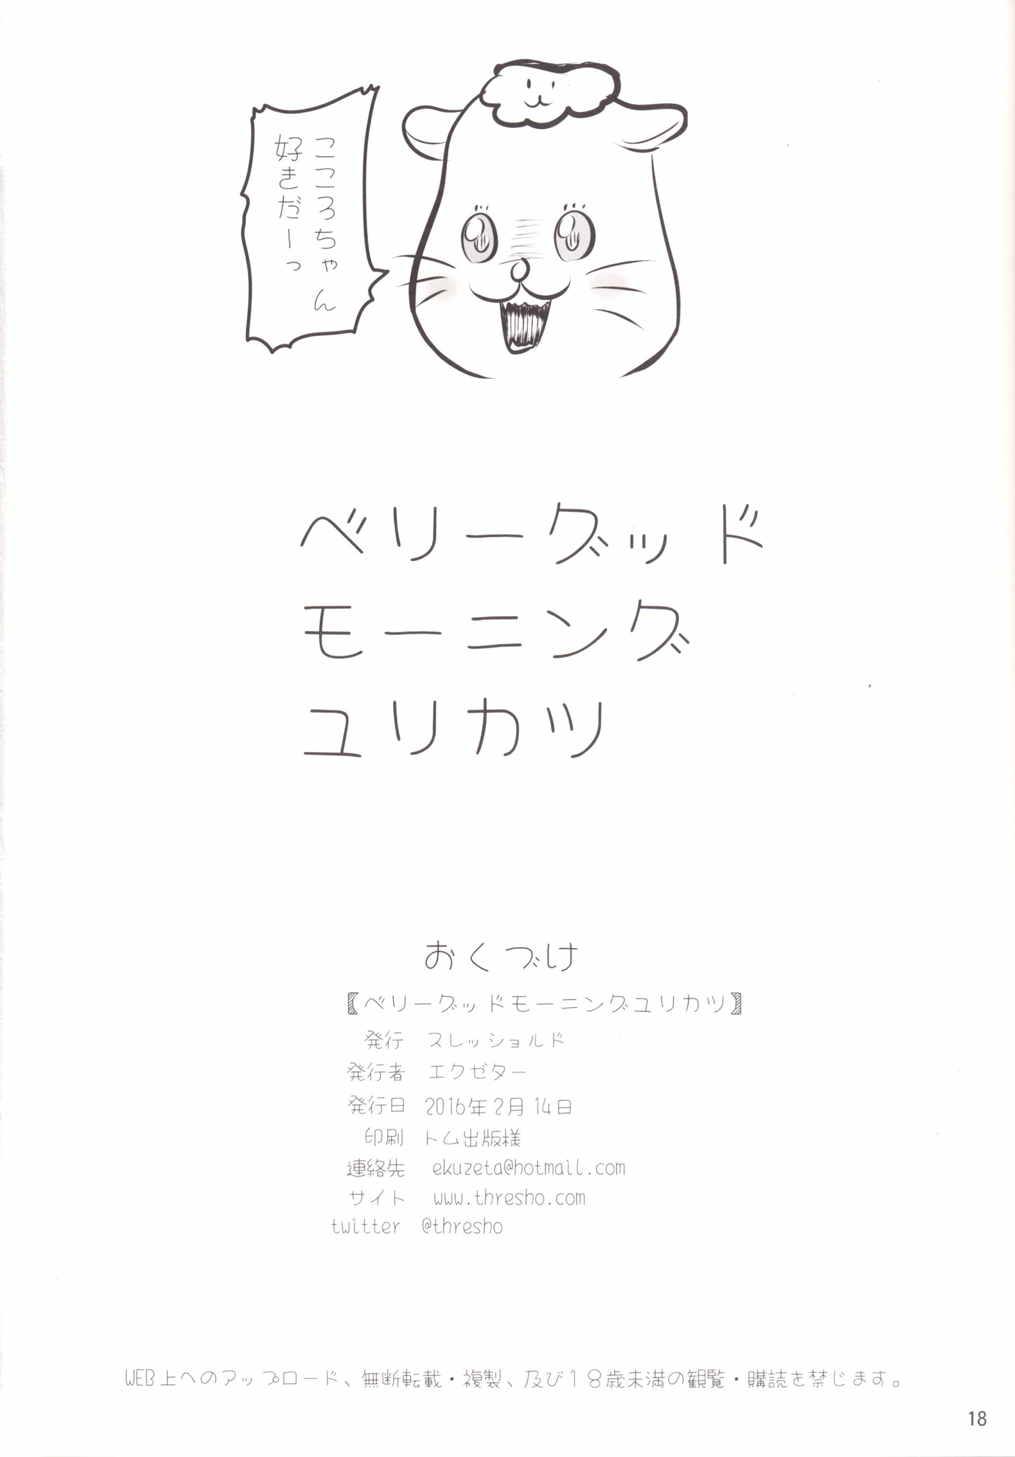 こころちゃん
好きだーっ
ベリーグッド
モーニング
ユリカツ
おくづけ
【ベリーグッドモーニングユリカツ】
発行 スレッショルド
発行者 エクゼター
発行日 2016年2月14日
印刷 トム出版様
連絡先 ekuzeta@hotmail.com
サイト www.thresho.com
twitter @thresho
WEB上へのアップロード、無断転載・複製、及び18歳未満の観覧・購読を禁じます。
18